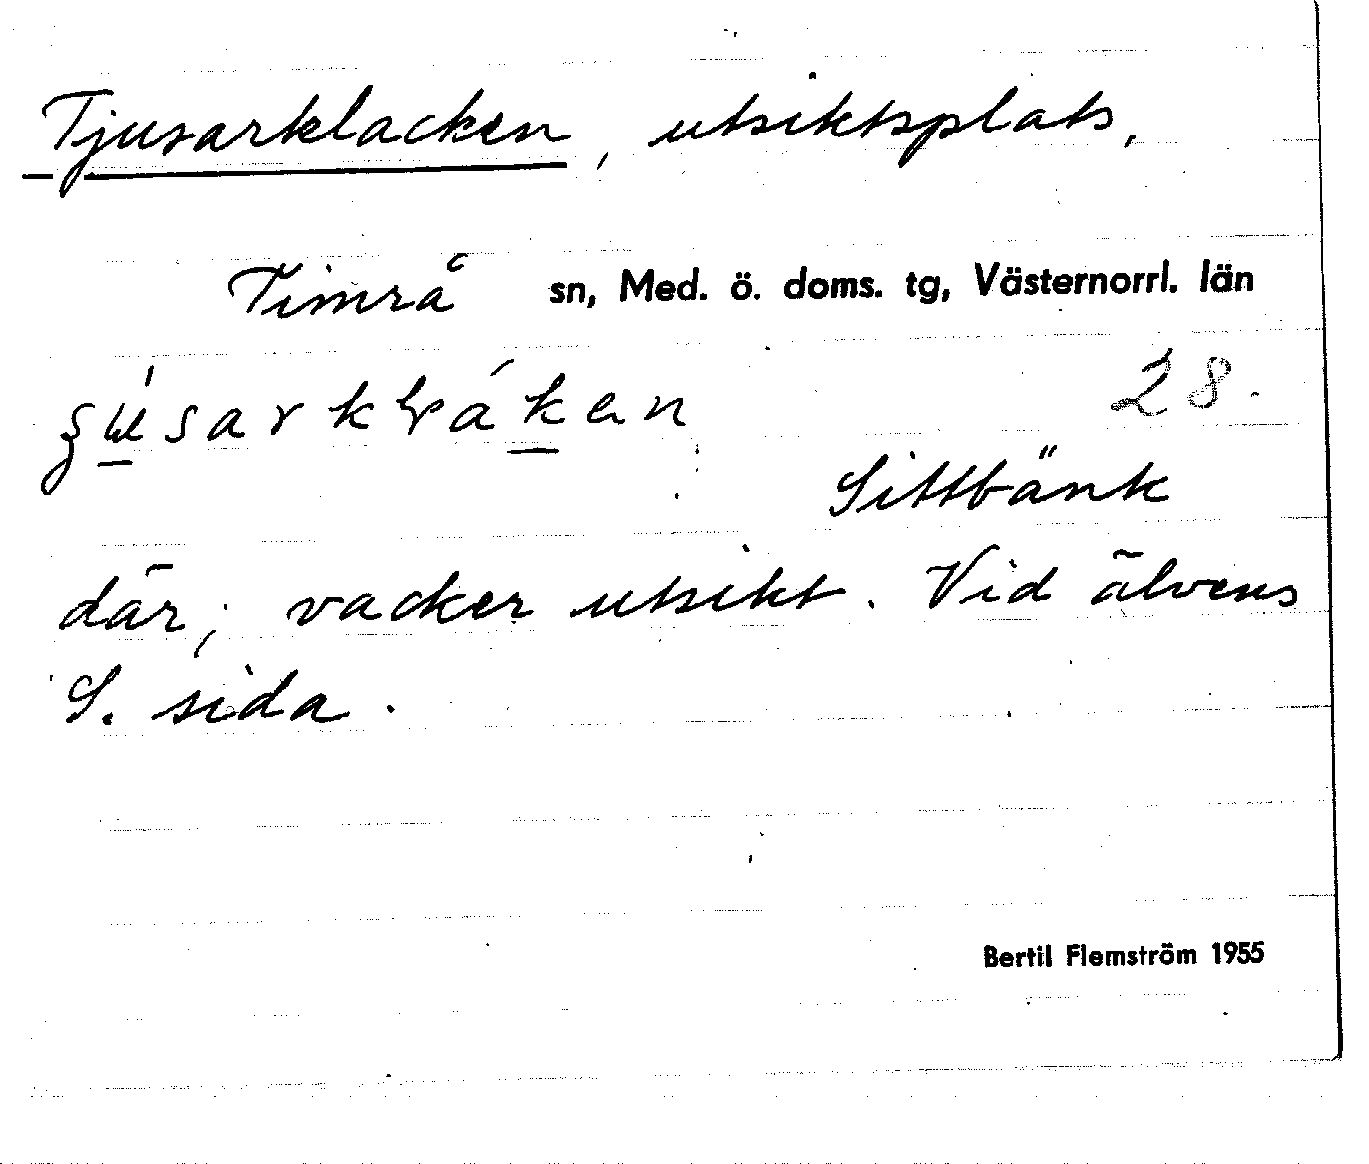 Tjusarklacken, utsiktsplats.
Timrå sn, Med. ö. doms. tg, Västernorrl. län
28.
Sittbänk
där, vacker utsikt. Vid älvens
S. sida.
Bertil Flemström 1955